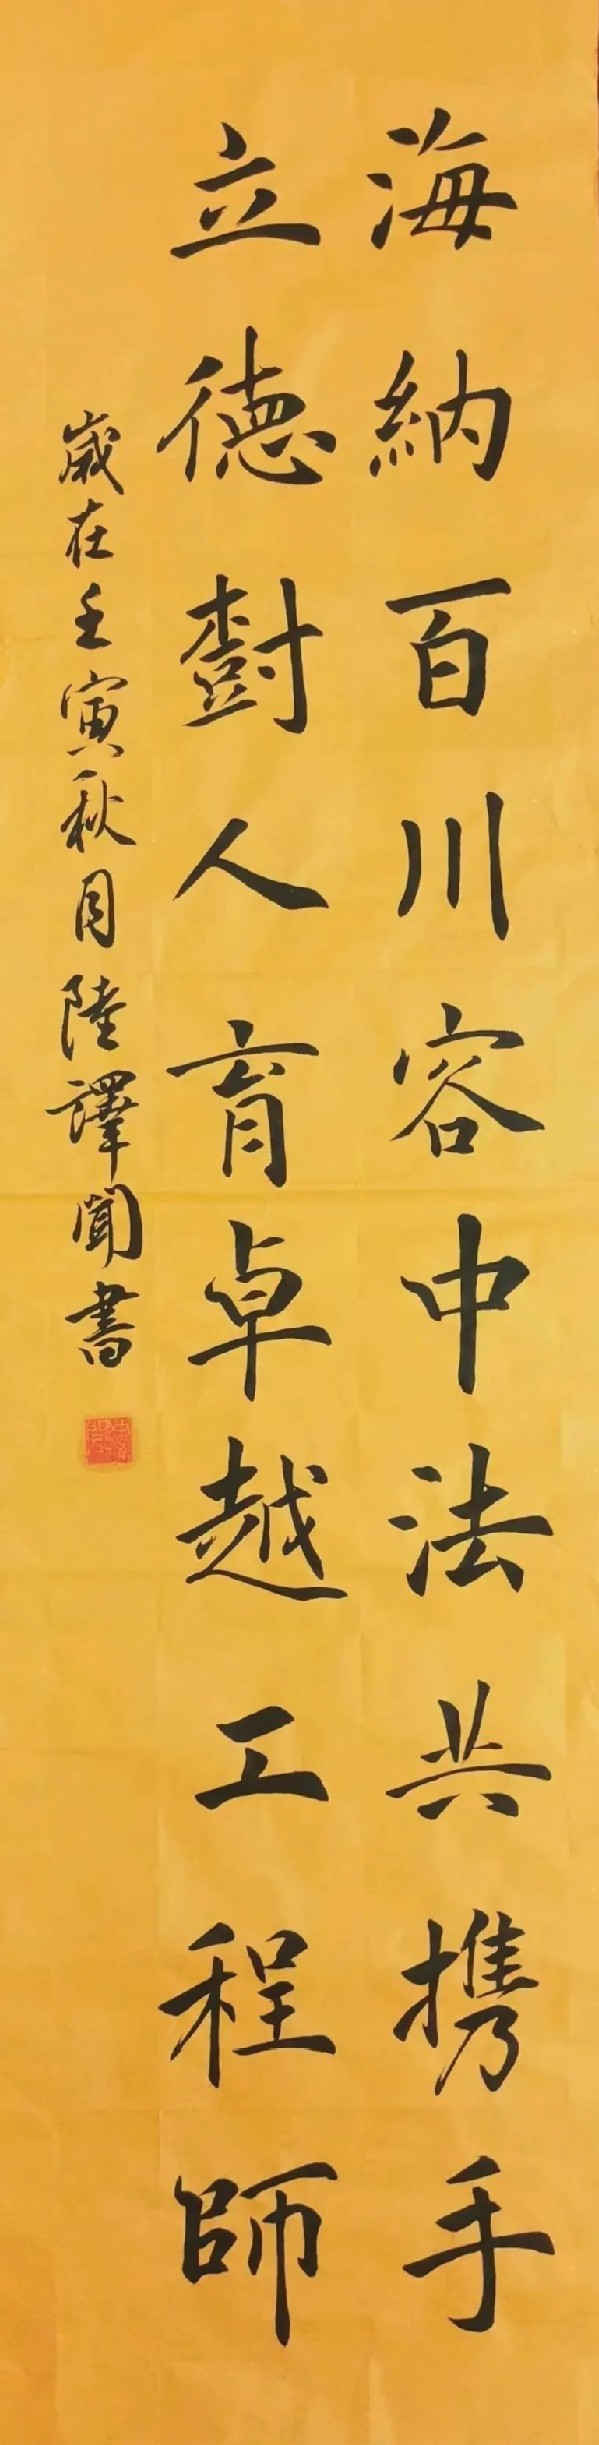 海納百川容中法共携手
立德樹人育卓越工程師
歲在壬寅秋月陸譯聞書